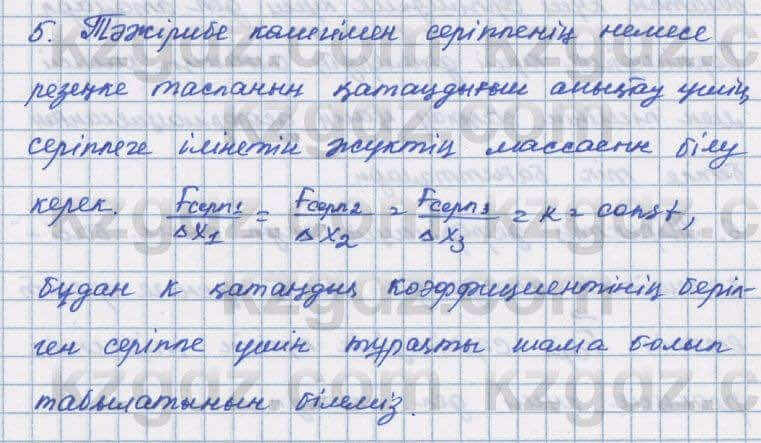 5. Тәжірибе көмегімен серіппенің немесе
резеңке таспаның қатаңдығын анықтау үшін
серіппеге ілінетін жүктің массасын білу
керек. Fсерп1/Δx1 = Fсерп2/Δx2 = Fсерп3/Δx3 = к = const,
бұдан к қатаңдық коэффициентінің беріл-
ген серіппе үшін тұрақты шама болып
табылатынын білеміз.
kzgdz.com